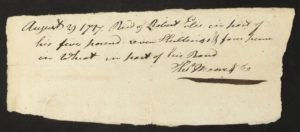 August 29 1797 Recd of Robert in part of
his five pound seven Shillings & four pence
in Wheat in part of his Bond
Thos Moore & Co